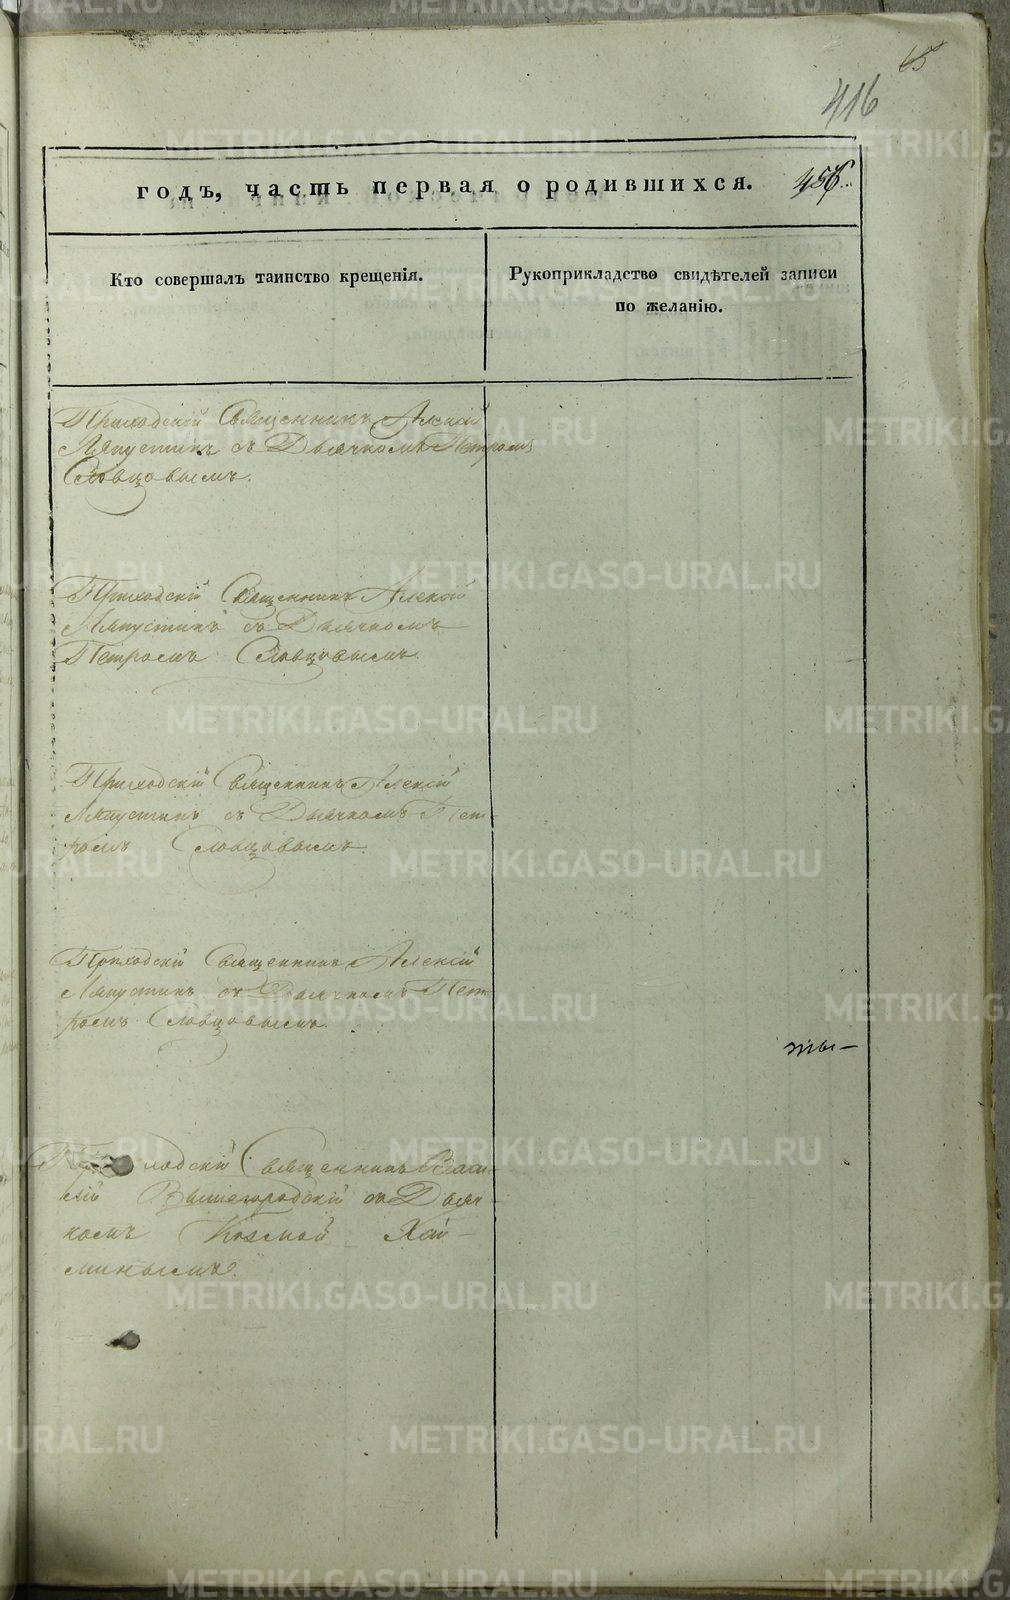 65
416
годъ, часть первая о родившихся. 456.
Кто совершалъ таинство крещенія.
Рукоприкладство свидѣтелей записи
по желанію.
Приходскій Священникъ Алексій
Ляпустинъ съ Дьячкомъ Петромъ
Словцовымъ.
Приходскій Священникъ Алексій
Ляпустинъ съ Дьячкомъ
Петромъ Словцовымъ.
Приходскій Священникъ Алексій
Ляпустинъ съ Дьячкомъ Пет
ромъ Словцовымъ.
Приходскій Священникъ Алексій
Ляпустинъ съ Дьячкомъ Пет
ромъ Словцовымъ.
ты—
Приходскій Священникъ Васи-
лій Вышегородскій съ Дьяч
комъ Козмой Хай-
минымъ.
METRIKI.GASO-URAL.RU